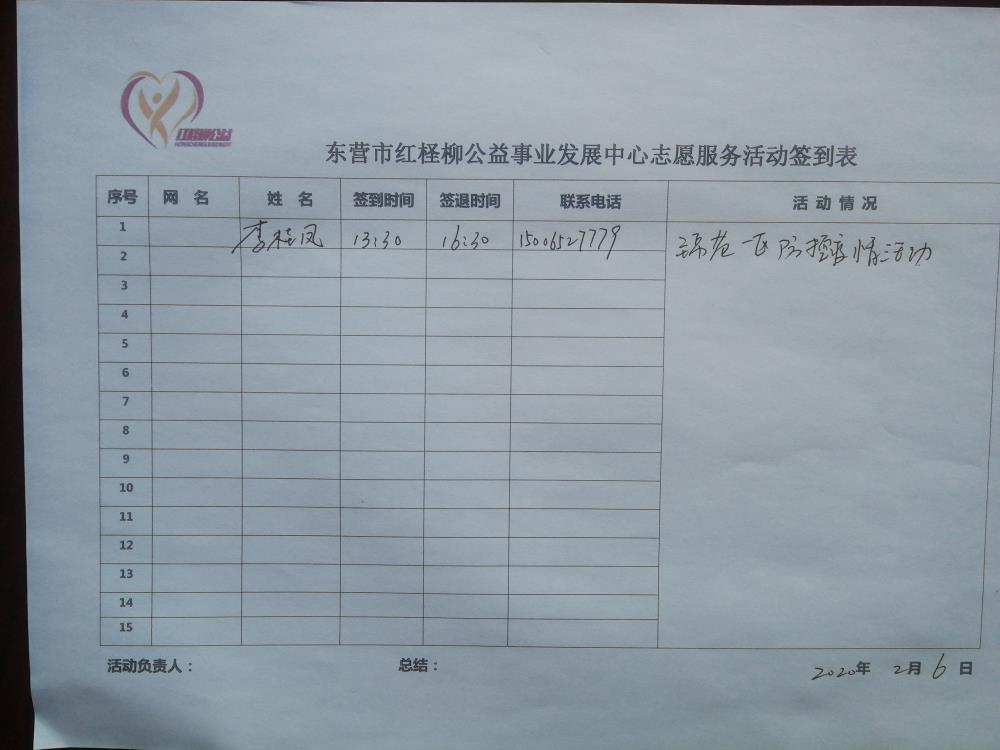 红柽柳公益
东营市红柽柳公益事业发展中心志愿服务活动签到表
序号 网 名 姓 名 签到时间 签退时间 联系电话 活 动 情 况
1 李桂凤 13:30 16:30 15006527779 一区防控疫情活动
2
3
4
5
6
7
8
9
10
11
12
13
14
15
活动负责人： 总结： 2020年 2月 6 日